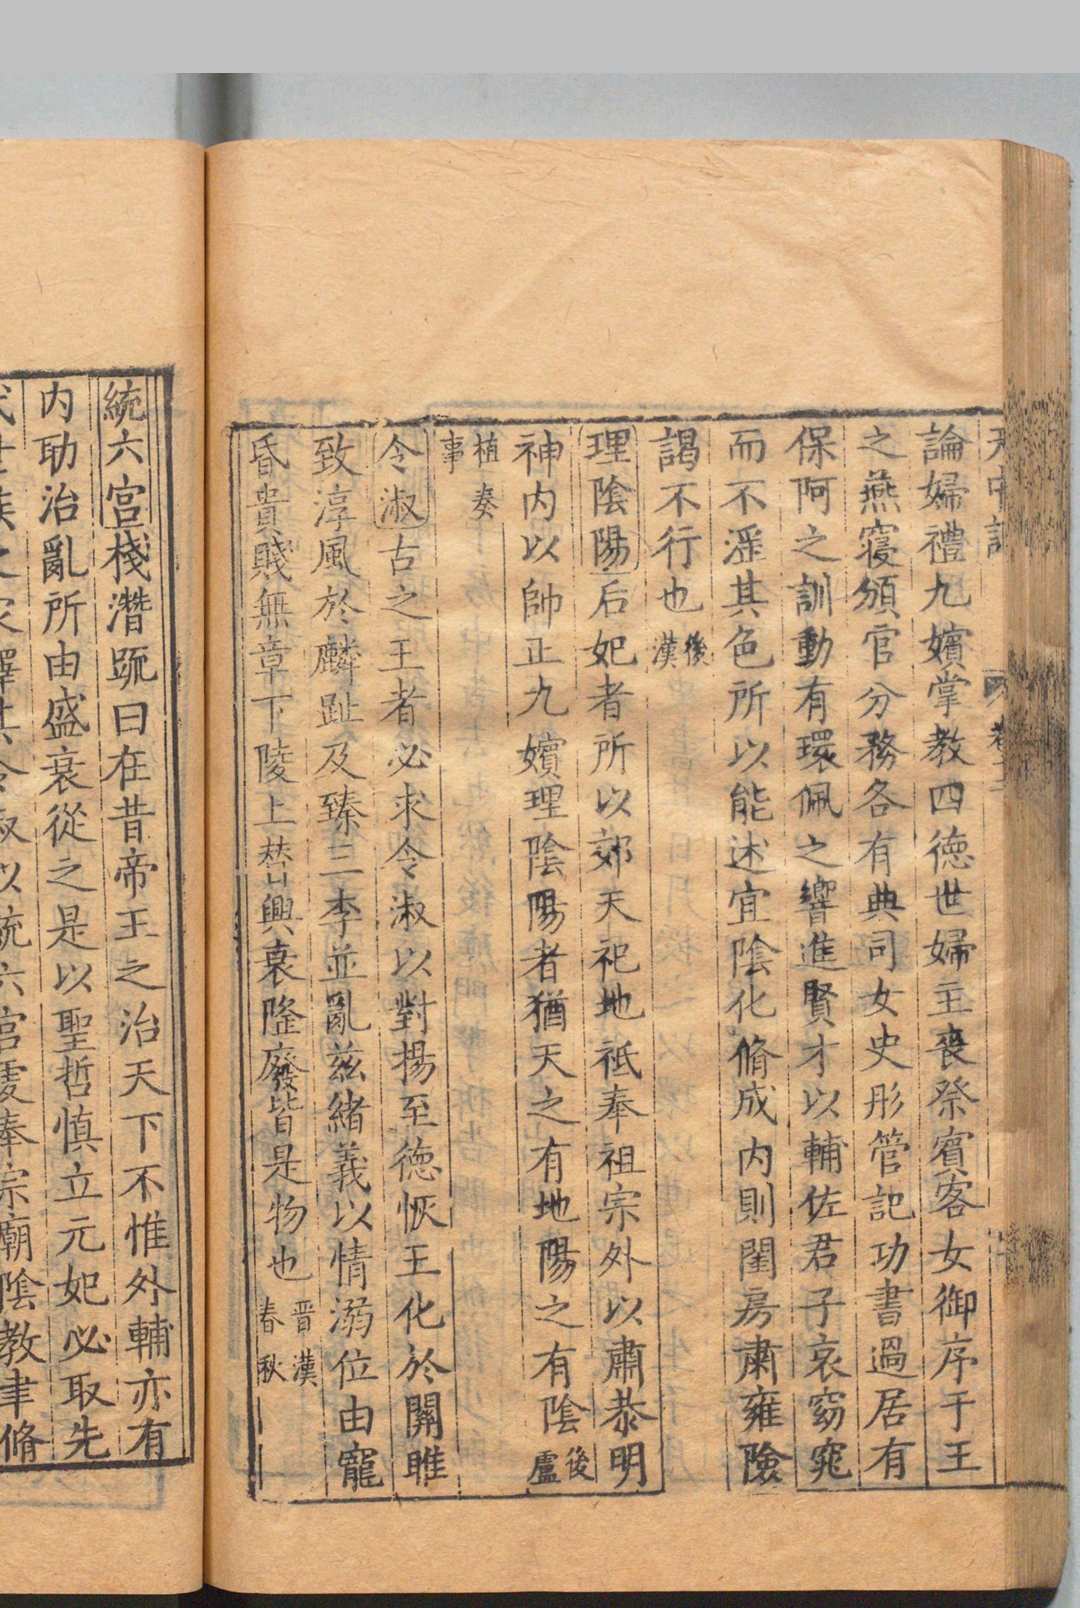 論婦禮九嬪掌教四徳世婦主喪祭賓客女御序于王
之燕寢頒官分務各有典司女史彤管記功書過居有
保阿之訓動有環佩之響進賢才以輔佐君子哀窈窕
而不淫其色所以能述宣陰化脩成内則閨房肅雍險
謁不行也後漢
理陰陽后妃者所以郊天祀地祗奉祖宗外以肅恭明
神内以帥正九嬪理陰陽者猶天之有地陽之有陰後盧
植奏事
令淑古之王者必求令淑以對揚至徳恢王化於關雎
致淳風於麟趾及臻三季並亂兹緒義以情溺位由寵
昏貴賤無章下陵上替興衰隆廢皆是物也晋漢春秋
統六宫棧潛䟽曰在昔帝王之治天下不惟外輔亦有
内助治亂所由盛衰從之是以聖哲慎立元妃必取先
代世族之家擇其令淑以統六宫虔奉宗廟陰教聿脩